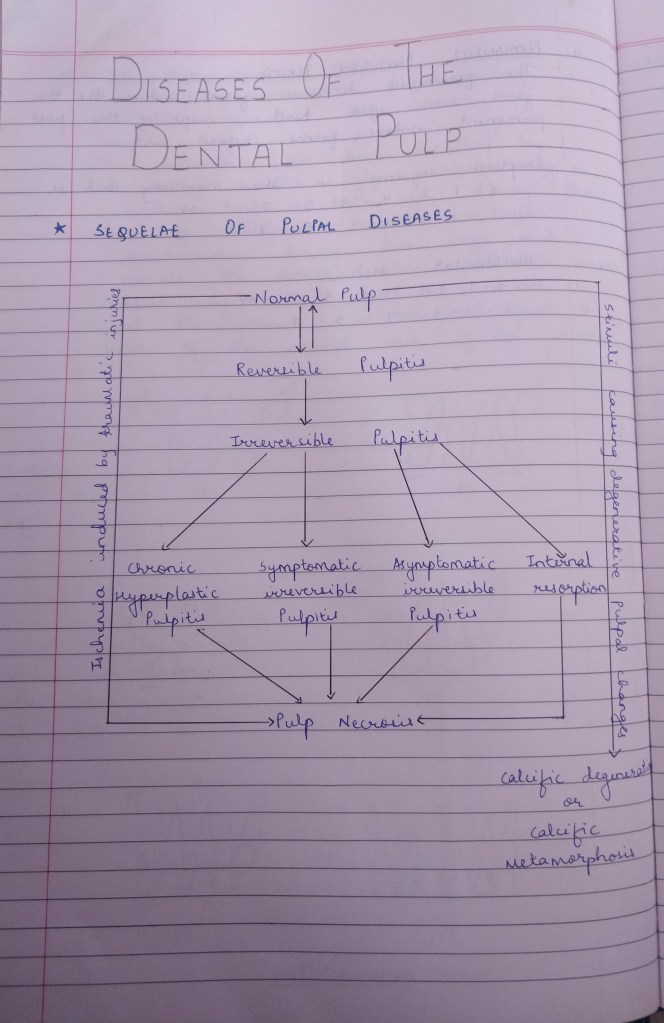 DISEASES OF THE
DENTAL PULP
* SEQUELAE OF PULPAL DISEASES
Normal Pulp
Reversible Pulpitis
Irreversible Pulpitis
Chronic Hyperplastic Pulpitis
Symptomatic irreversible Pulpitis
Asymptomatic irreversible Pulpitis
Internal resorption
Pulp Necrosis
Ischemia induced by traumatic injuries
Stimuli causing degenerative pulpal changes
Calcific degenerat
or
Calcific
Metamorphosis